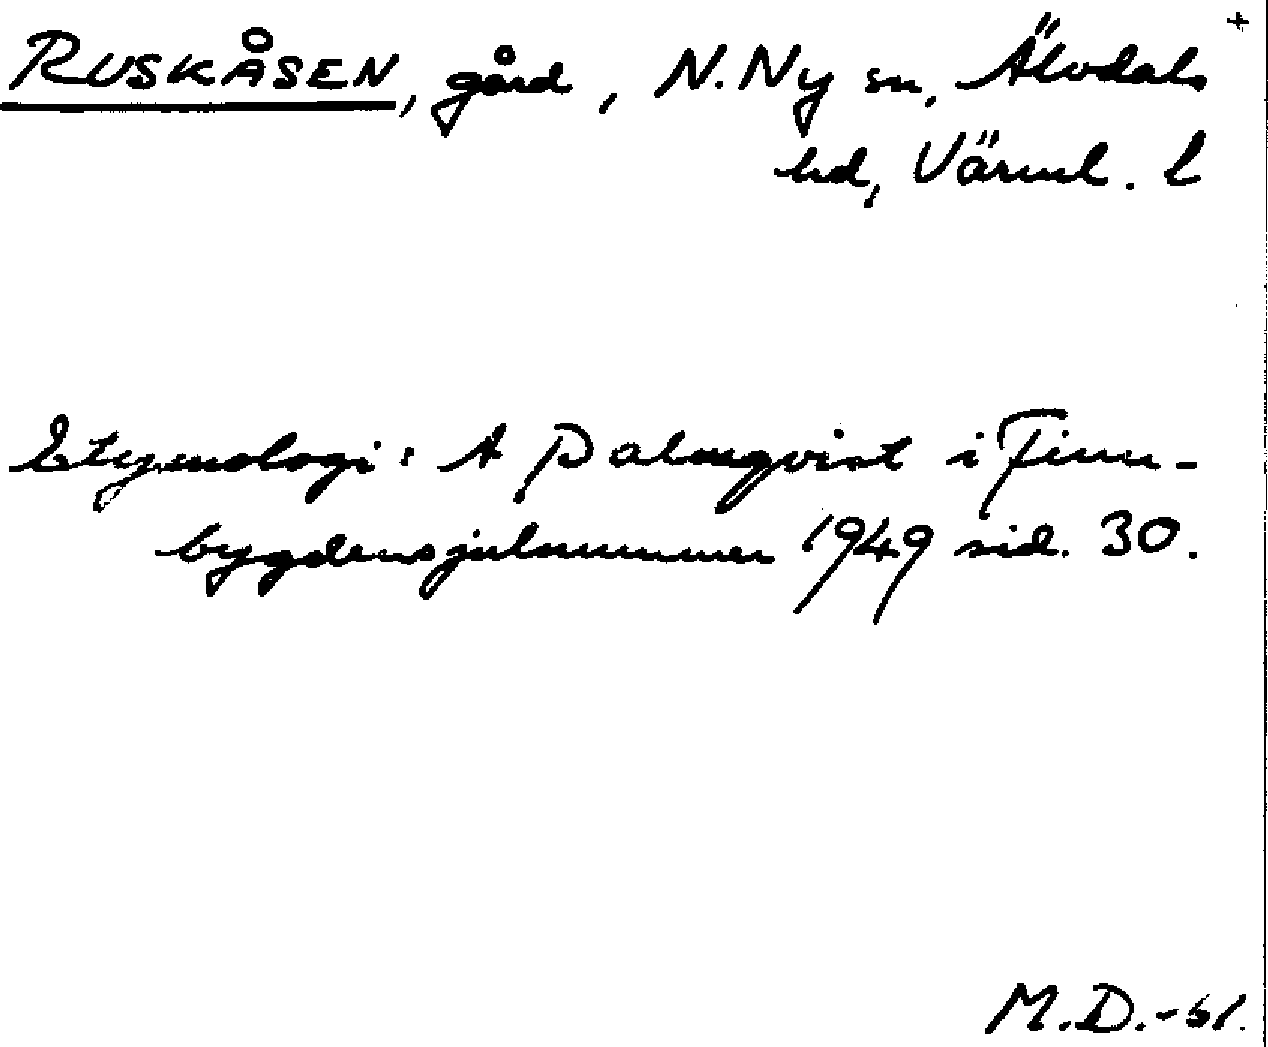 RUSKÅSEN, gård, N. Ny sn, Älvdals +
hd, Värml. l
Etymologi: A Palmqvist i Finn-
bygdens julnummer 1949 sid. 30.
M.D.-61.